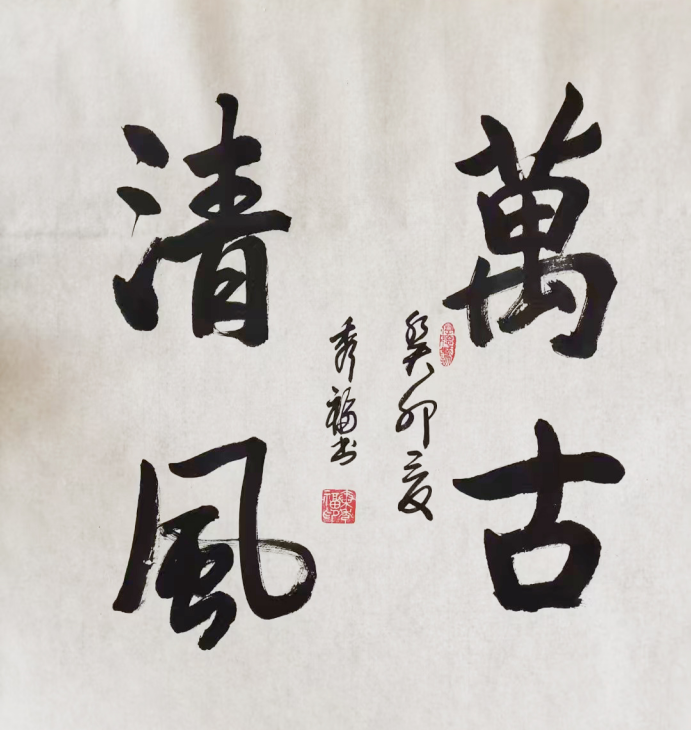 萬古
清風
癸卯夏
秀福书